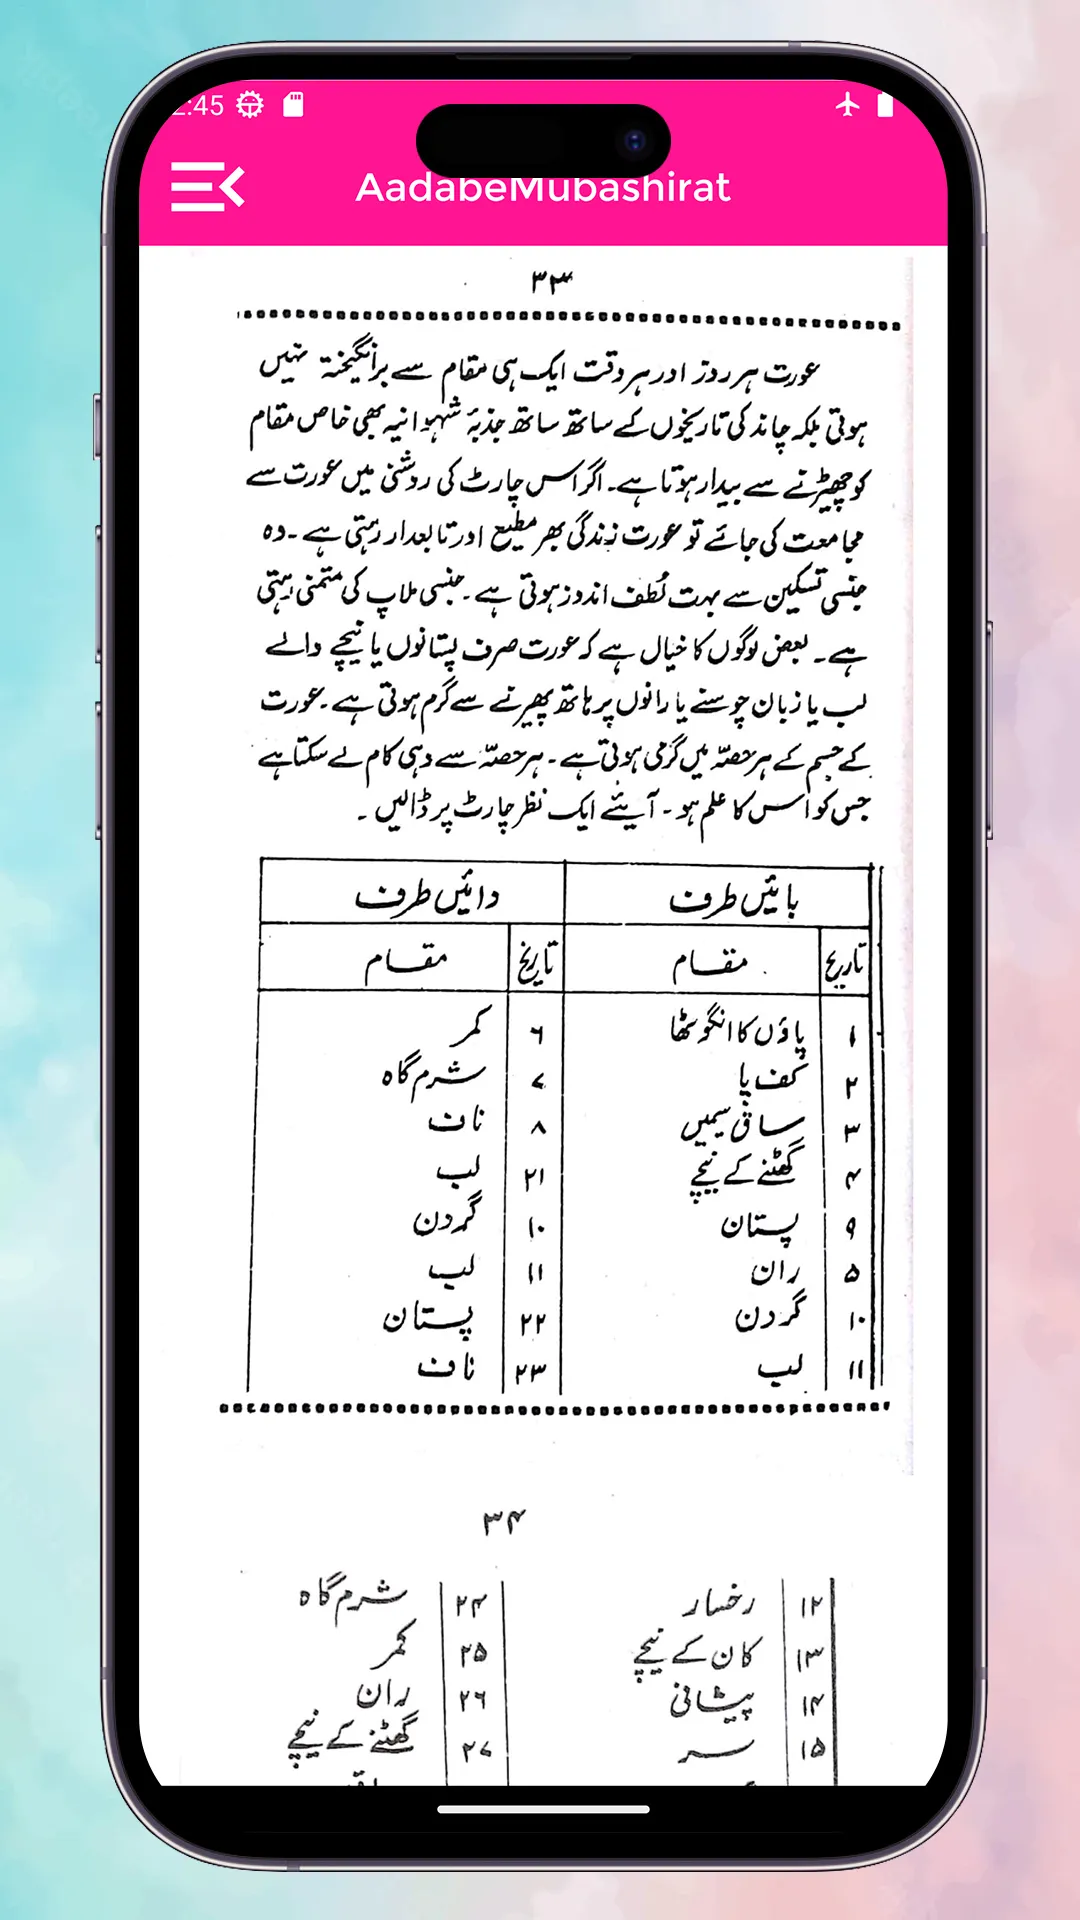 2:45
AadabeMubashirat
۳۳
عورت ہر روز اور ہر وقت ایک ہی مقام سے برانگیختہ نہیں
ہوتی بلکہ چاند کی تاریخوں کے ساتھ ساتھ جذبۂ شہوانیہ بھی خاص مقام
کو چھیڑنے سے بیدار ہوتا ہے۔ اگر اس چارٹ کی روشنی میں عورت سے
مجامعت کی جائے تو عورت زندگی بھر مطیع اور تابعدار رہتی ہے۔ وہ
جنسی تسکین سے بہت لُطف اندوز ہوتی ہے۔ جنسی ملاپ کی متمنی رہتی
ہے۔ بعض لوگوں کا خیال ہے کہ عورت صرف پستانوں یا نیچے والے
لب یا زبان چوسنے یا رانوں پر ہاتھ پھیرنے سے گرم ہوتی ہے۔ عورت
کے جسم کے ہر حصّہ میں گرمی ہوتی ہے۔ ہر حصّہ سے وہی کام لے سکتا ہے
جس کو اس کا علم ہو۔ آیئے ایک نظر چارٹ پر ڈالیں۔
بائیں طرف دائیں طرف
تاریخ مقام تاریخ مقام
۱ پاؤں کا انگوٹھا ۶ کمر
۲ کف پا ۷ شرم گاہ
۳ ساق سیمیں ۸ ناف
۴ گھٹنے کے نیچے ۲۱ لب
۹ پستان ۱۰ گردن
۵ ران ۱۱ لب
۱۰ گردن ۲۲ پستان
۱۱ لب ۲۳ ناف
۳۴
۱۲ رخسار ۲۴ شرم گاہ
۱۳ کان کے نیچے ۲۵ کمر
۱۴ پیشانی ۲۶ ران
۱۵ سر ۲۷ گھٹنے کے نیچے